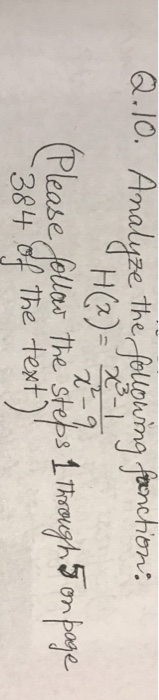 Q.10. Analyze the following function:
H(x) = x³-1 / x²-9
(Please follow the steps 1 through 5 on page
384 of the text)